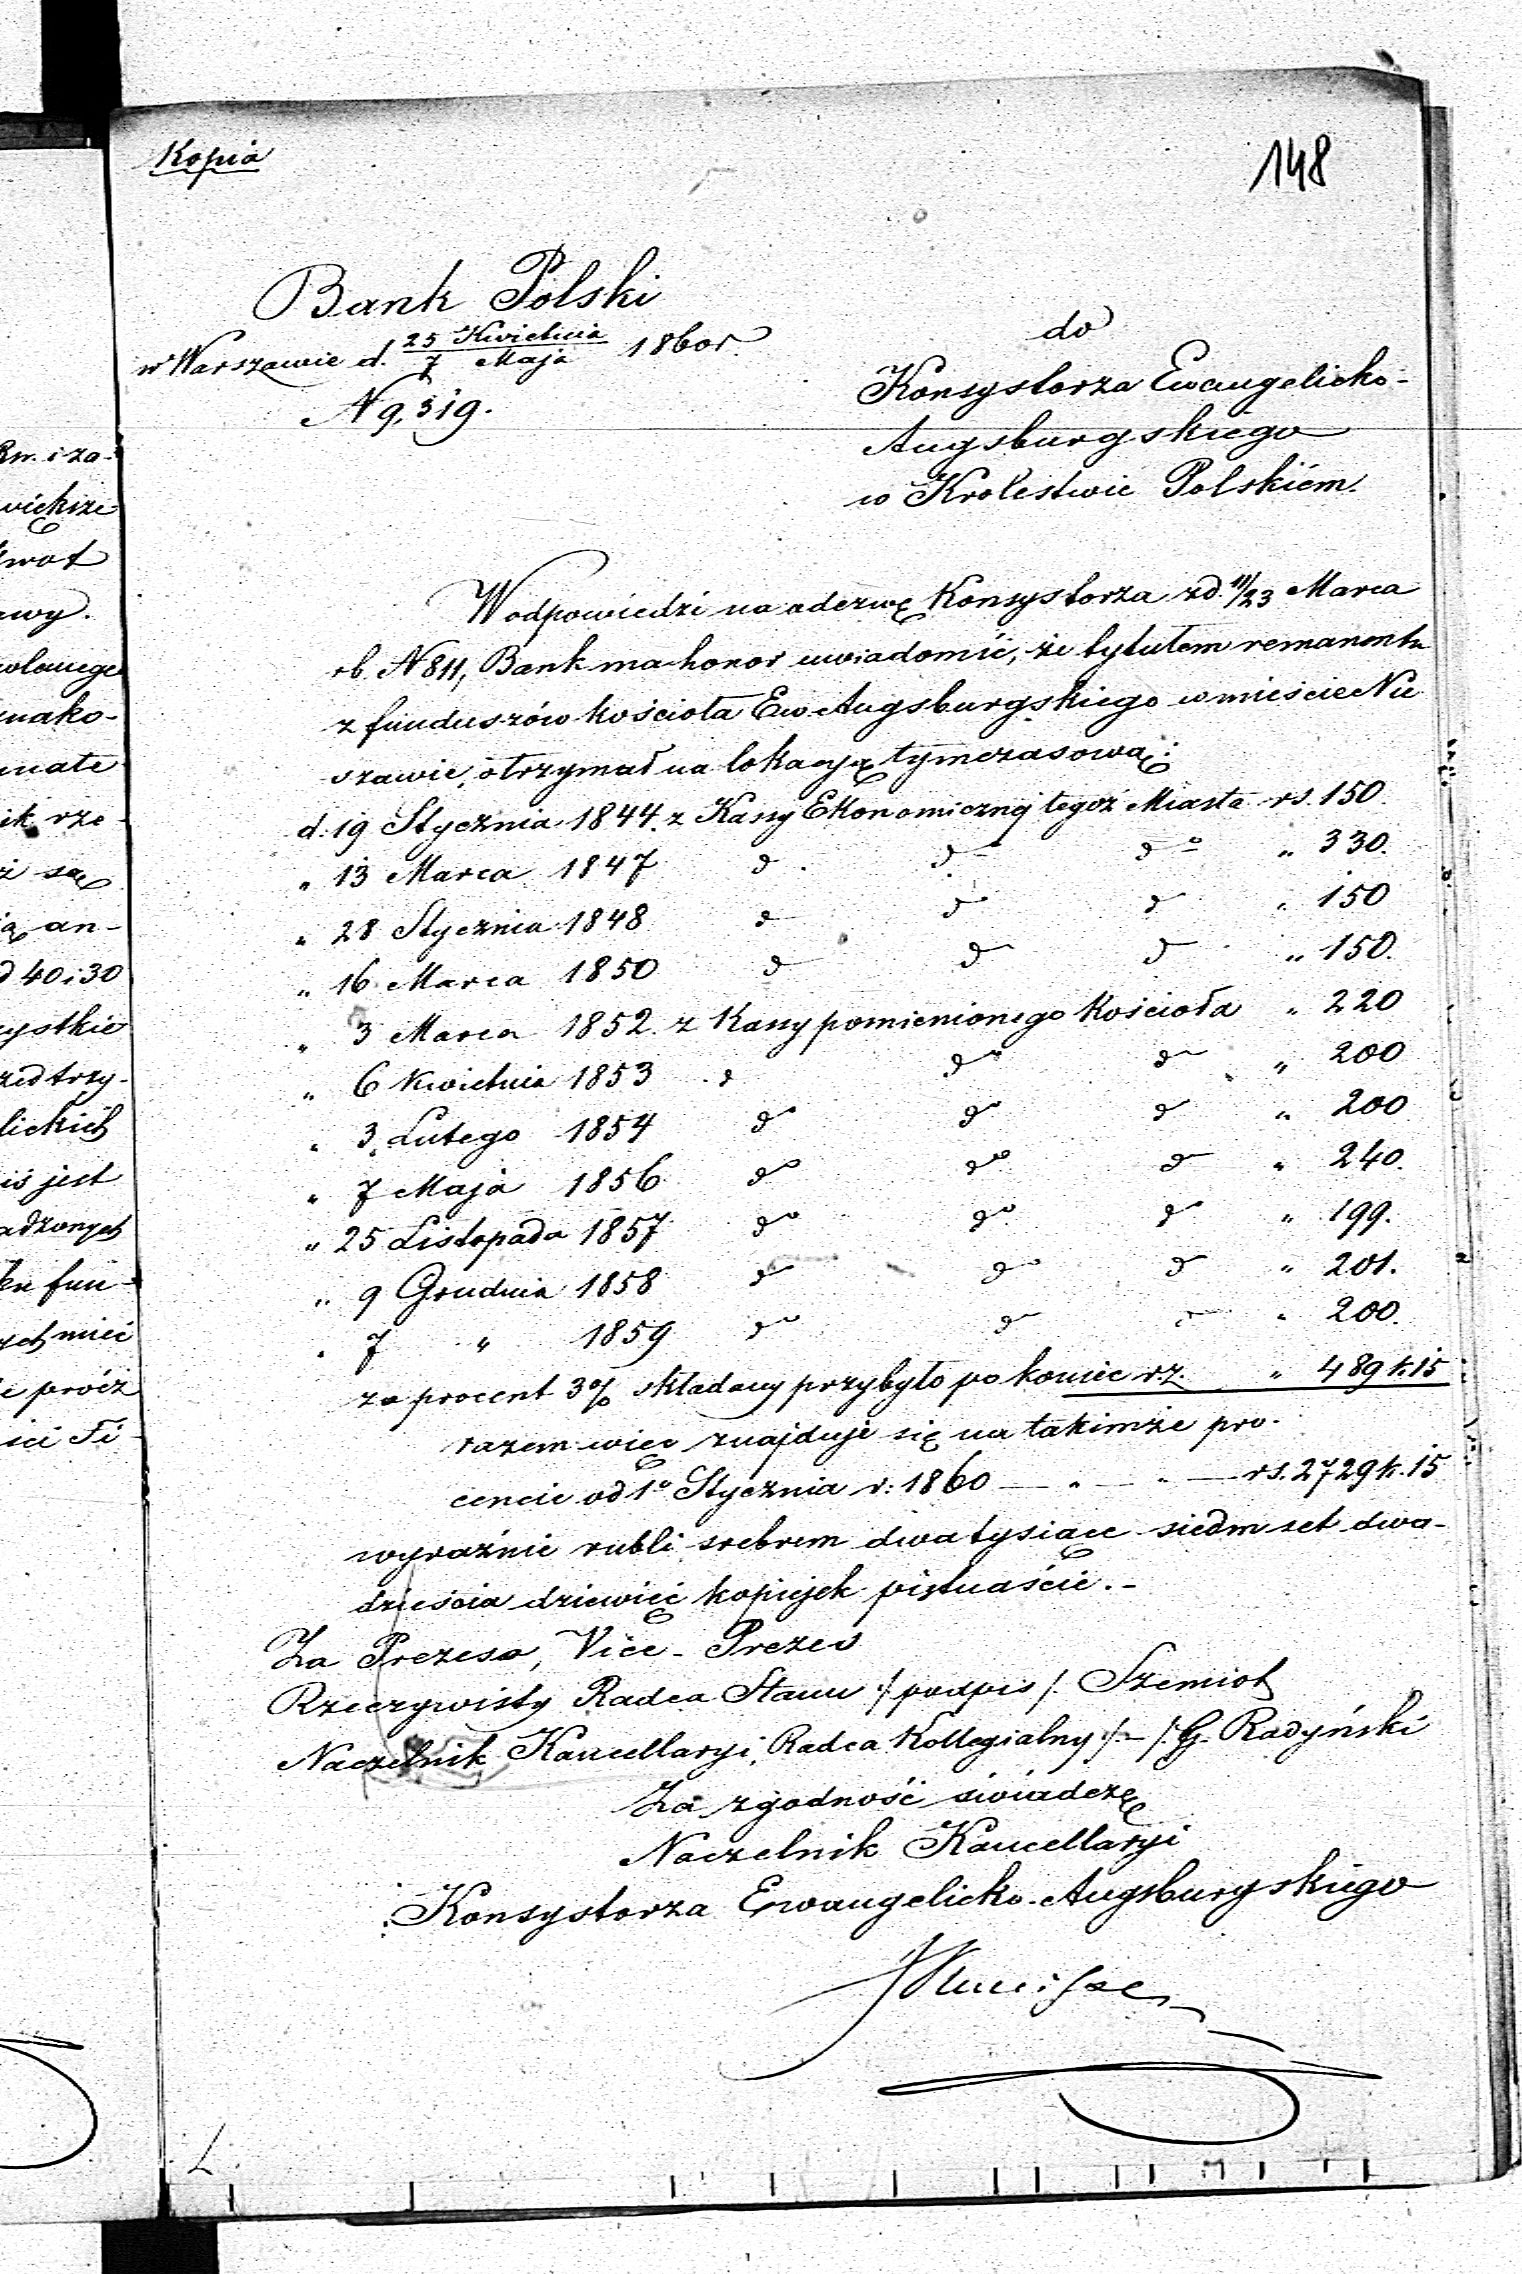 Kopia
148
Bank Polski
w Warszawie d. 25 Kwietnia / 7 Maja 1860 r.
N 9,319.
do
Konsystorza Ewangelicko-
Augsburgskiego
w Krolestwie Polskiém.
W odpowiedzi na odezwę Konsystorza z d. 11/23 Marca
rb. N 811, Bank ma honor uwiadomić, że tytułem remanentu
z funduszów kościoła Ew. Augsburgskiego w mieście Nie
szawie, otrzymał na lokacyą tymczasową:
d. 19 Stycznia 1844. z Kassy Ekonomicznéj tegoż Miasta rs. 150.
" 13 Marca 1847 do do do " 330.
" 28 Stycznia 1848 do do do " 150
" 16 Marca 1850 do do do " 150.
" 3 Marca 1852. z Kassy pomienionego Kościoła " 220
" 6 Kwietnia 1853 do do do " 200
" 3 Lutego 1854 do do do " 200
" 7 Maja 1856 do do do " 240.
" 25 Listopada 1857 do do do " 199.
" 9 Grudnia 1858 do do do " 201.
" 7 " 1859 do do do " 200.
za procent 3% składany przybyło po koniec r.z. " 489 k. 15
razem więc znajduje się na takimże pro-
cencie od 1o Stycznia r: 1860 — " — " — rs. 2729 k. 15
wyraźnie rubli srebrem dwa tysiące siedm set dwa-
dzieścia dziewięć kopiejek piętnaście.-
Za Prezesa, Vice-Prezes
Rzeczywisty Radca Stanu /podpis/ Szemioth
Naczelnik Kancellaryi, Radca Kollegialny /-/ G. Radyński
Za zgodność świadczę
Naczelnik Kancellaryi
Konsystorza Ewangelicko-Augsburgskiego
Rn. i za-
większe
kwot
awy.
ik rze-
ż są
ią an-
d 40 i 30
zystkie
zed trzy-
lickich
iś jest
adzonych
ku fun-
ych mieć
e prócz
ści Ti-
L.